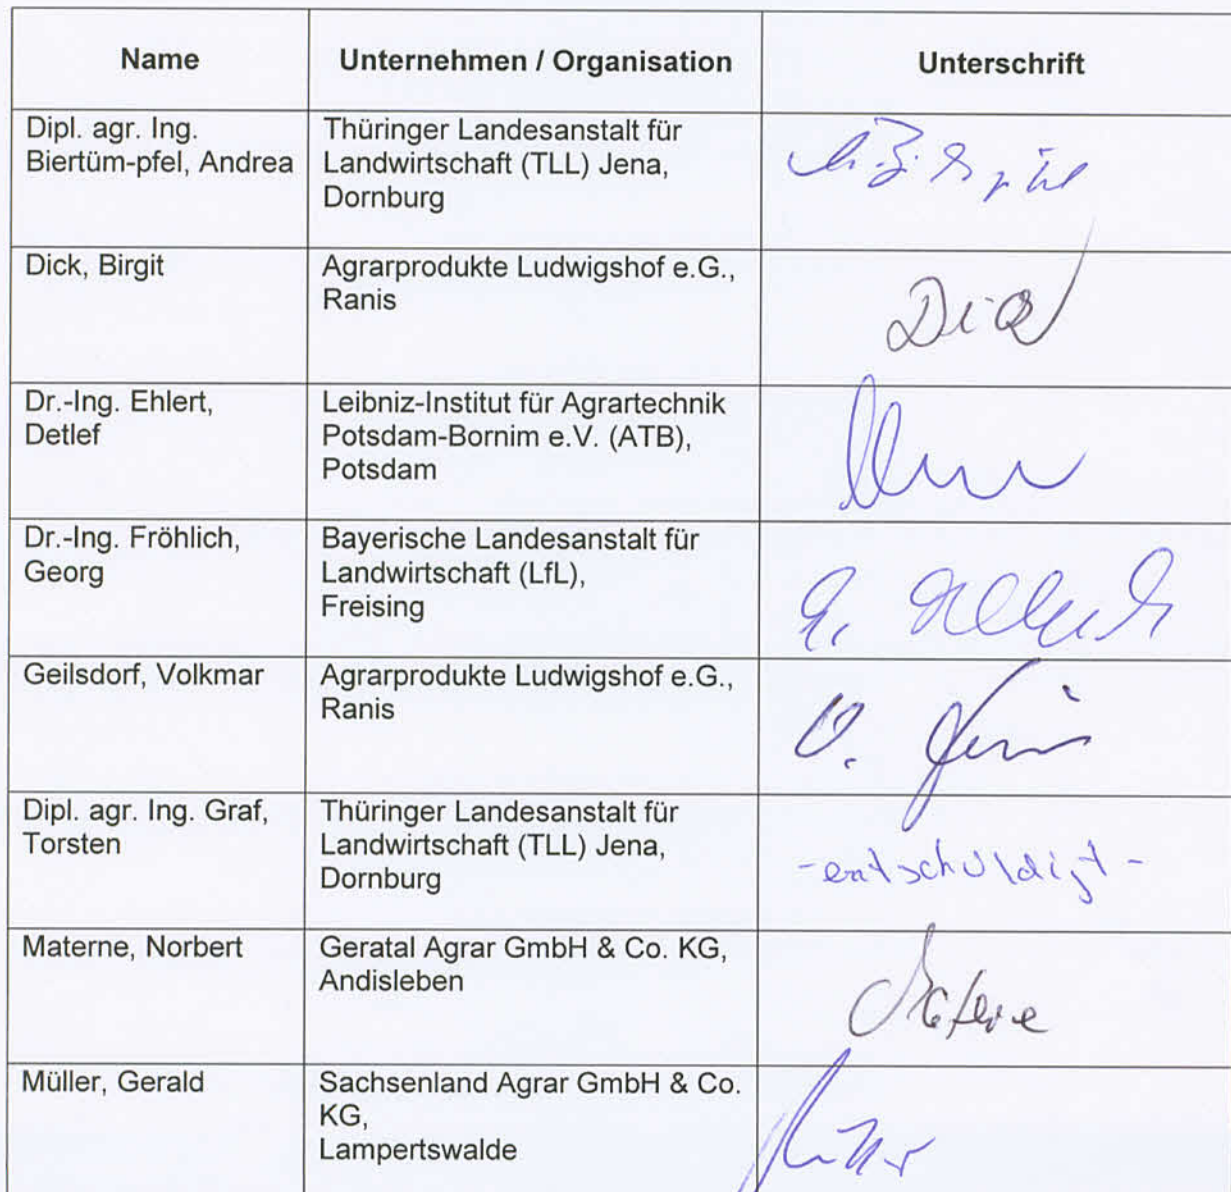 Name Unternehmen / Organisation Unterschrift
Dipl. agr. Ing.
Biertüm-pfel, Andrea
Thüringer Landesanstalt für
Landwirtschaft (TLL) Jena,
Dornburg
Dick, Birgit
Agrarprodukte Ludwigshof e.G.,
Ranis
Dick
Dr.-Ing. Ehlert,
Detlef
Leibniz-Institut für Agrartechnik
Potsdam-Bornim e.V. (ATB),
Potsdam
Dr.-Ing. Fröhlich,
Georg
Bayerische Landesanstalt für
Landwirtschaft (LfL),
Freising
Geilsdorf, Volkmar
Agrarprodukte Ludwigshof e.G.,
Ranis
Dipl. agr. Ing. Graf,
Torsten
Thüringer Landesanstalt für
Landwirtschaft (TLL) Jena,
Dornburg
-entschuldigt-
Materne, Norbert
Geratal Agrar GmbH & Co. KG,
Andisleben
Materne
Müller, Gerald
Sachsenland Agrar GmbH & Co.
KG,
Lampertswalde